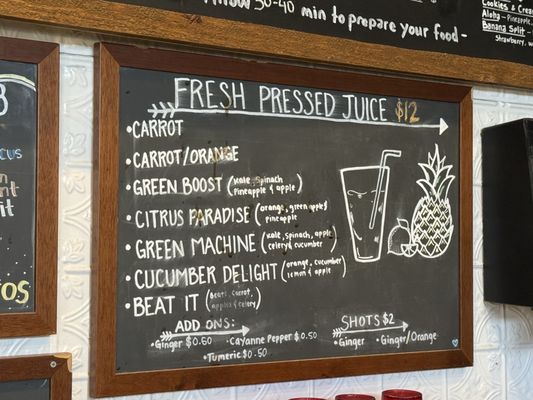 Allow 30-40 min to prepare your food -
Cookies & Cream
Aloha - Pineapple,
Banana Split -
Strawberry,
FRESH PRESSED JUICE $12
• CARROT
• CARROT/ORANGE
• GREEN BOOST (Kale, Spinach
Pineapple & apple)
• CITRUS PARADISE (orange, green apple
pineapple)
• GREEN MACHINE (kale, spinach, apple
celery & cucumber)
• CUCUMBER DELIGHT (orange, cucumber
lemon & apple)
• BEAT IT (Beats, Carrot,
apples & celery)
ADD ONS:
• Ginger $0.60 • Cayanne Pepper $0.50
• Tumeric $0.50
SHOTS $2
• Ginger • Ginger/Orange